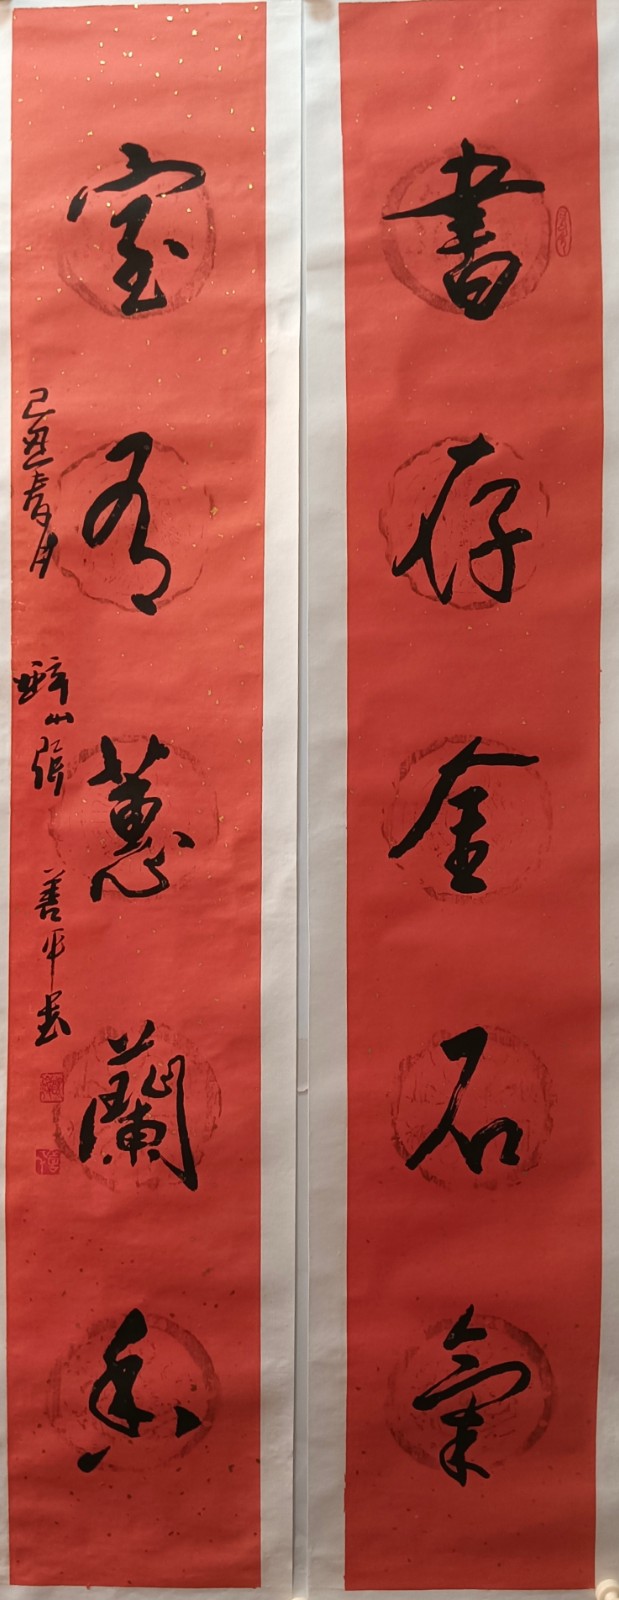 書存金石氣
室有蕙蘭香
己丑春月
醉山張善平書